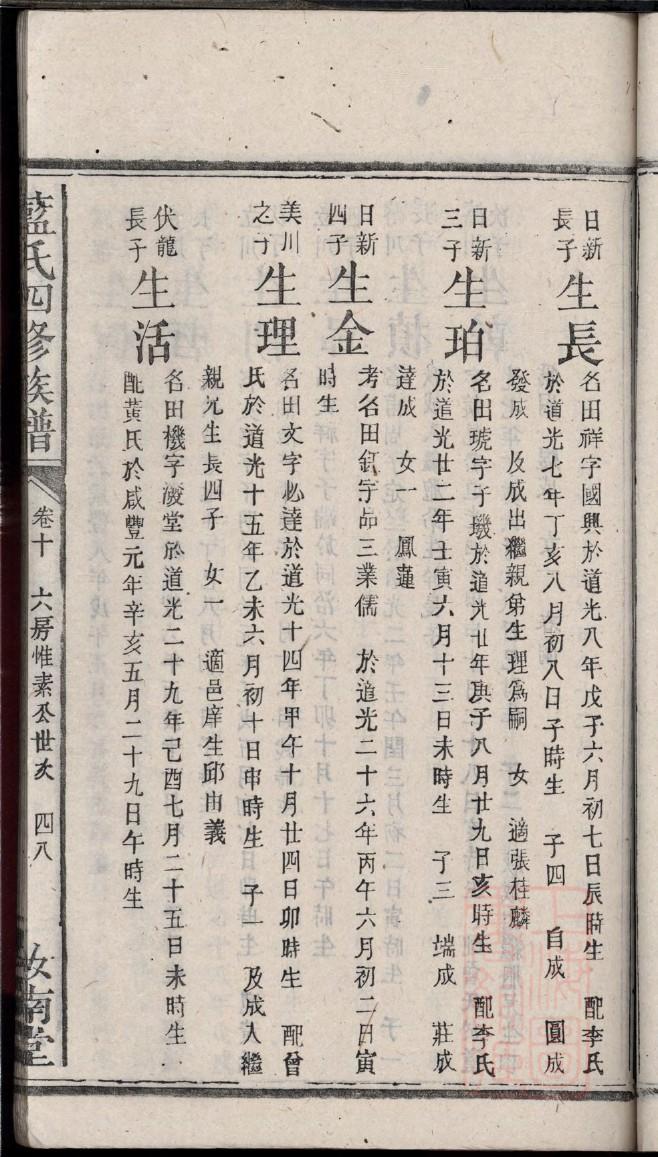 日新長子
生長
名田祥字國興於道光八年戊子六月初七日辰時生 配李氏
於道光七年丁亥八月初八日子時生 子四 自成 圓成
發成 及成出繼親弟生理爲嗣 女 適張桂麟
日新三子
生珀
名田琥字子璣於道光廿年庚子八月廿九日亥時生 配李氏
於道光廿二年壬寅六月十三日未時生 子三 端成 莊成
達成 女一 鳳蓮
日新四子
生金
考名田釘字品三業儒 於道光二十六年丙午六月初二日寅
時生
美川之子
生理
名田文字必達於道光十四年甲午十月廿四日卯時生 配曾
氏於道光十五年乙未六月初十日申時生 子一 及成入繼
親兄生長四子 女 適邑庠生邱由義
伏龍長子
生活
名田機字澂堂於道光二十九年己酉七月二十五日未時生
配黃氏於咸豐元年辛亥五月二十九日午時生
藍氏四修族譜
卷十 六房惟素公世次 四八
汝南堂